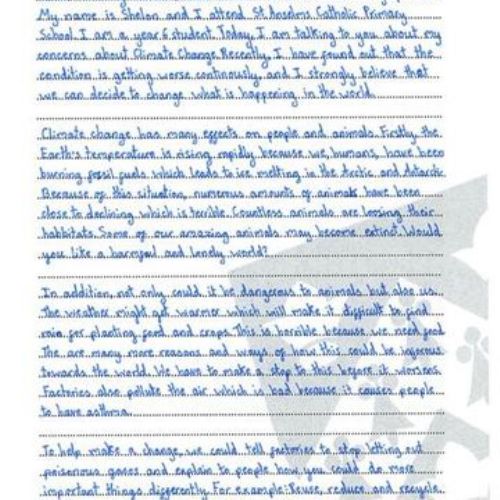 My name is Shelon and I attend St Anselms Catholic Primary
School. I am a year 6 student. Today, I am talking to you about my
concerns about Climate Change. Recently, I have found out that the
condition is getting worse continously, and I strongly believe that
we can decide to change what is happening in the world.
Climate change has many effects on people and animals. Firstly, the
Earth's temperature is rising rapidly because we, humans, have been
burning fossil fuels which leads to ice melting in the Arctic and Antarctic.
Because of this situation, numerous amounts of animals have been
close to declining which is terrible. Countless animals are lossing their
habbitats. Some of our amazing animals may become extinct. Would
you like a harmful and lonely world?
In addition, not only could it be dangerous to animals but also us.
The weather might get warmer which will make it difficult to find
rain for planting food and crops. This is horrible because we need food.
The are many more reasons and ways of how this could be injerous
towards the world. We have to make a stop to this before it worsens.
Factories also pollute the air which is bad because it causes people
to have asthma.
To help make a change, we could tell factories to stop letting out
poisonous gases and explain to people how you could do more
important things differently. For example: Reuse, reduce and recycle.